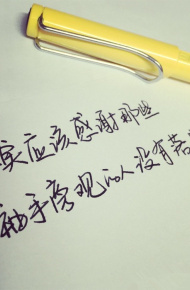 实应该感谢那些
袖手旁观的人没有落